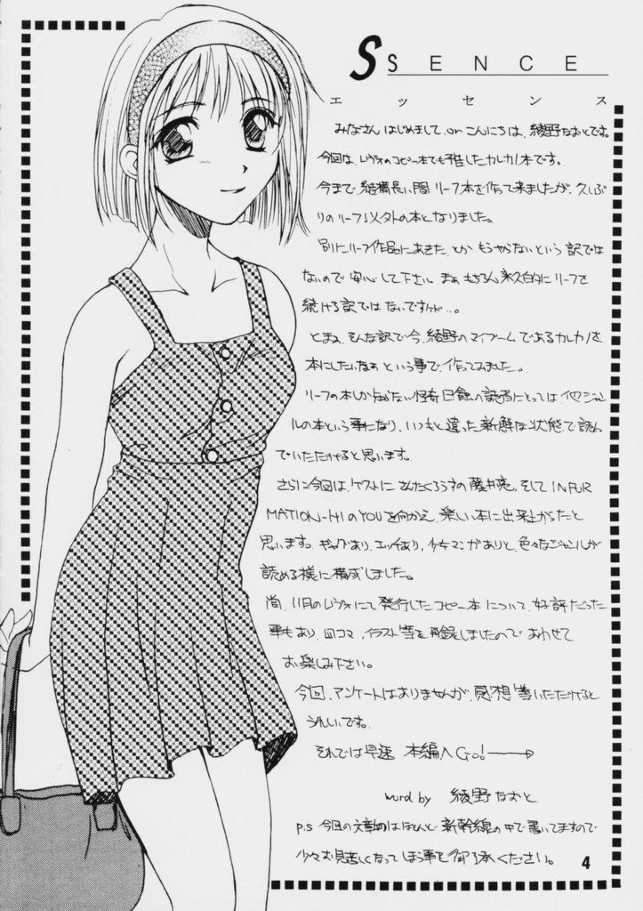 SSENCE
エッセンス
みなさんはじめまして、or こんにちは、綾野なおとです。
今回は、レヴォのコピー本でも出したカルカノ本です。
今まで、結構長い間リーフ本を作って来ましたが、久しぶ
りのリーフ以外の本となりました。
別にリーフ作品にあきた、とか もうやらないという訳では
ないので安心して下さい。まぁ、もちろん永久的にリーフを
続ける訳ではないですけど…。
とまぁ、そんな訳で今、綾野のマイブームであるカルカノを
本にしたいなぁという事で、作ってみました。
リーフの本しか 読者にとっては他ジャン
ルの本という事になり、いつもと違った新鮮な状態で読ん
でいただけると思います。
さらに今回は、ゲストに の藤井 、そしてINFOR
MATION-HIのYOUを向かえ、楽しい本に出来上がったと
思います。ギャグあり、エッチあり、少女マンガありと、色々なジャンルが
読める様に構成しました。
尚、11月のレヴォにて発行したコピー本について、好評だった
事もあり、四コマ、イラスト等を再録しましたのであわせて
お楽しみ下さい。
今回、アンケートはありませんが、感想等いただけると
うれしいです。
それでは早速 本編へGo!→
word by 綾野なおと
P.S 今回の文章はほとんど新幹線の中で書いてますので
少々お見苦しくなってしまう事を御了承ください。
4